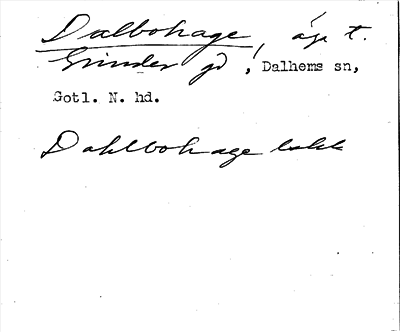 Dalbohage, äga t.
Grinder gd, Dalhems sn,
Gotl. N. hd.
Dahlbohage